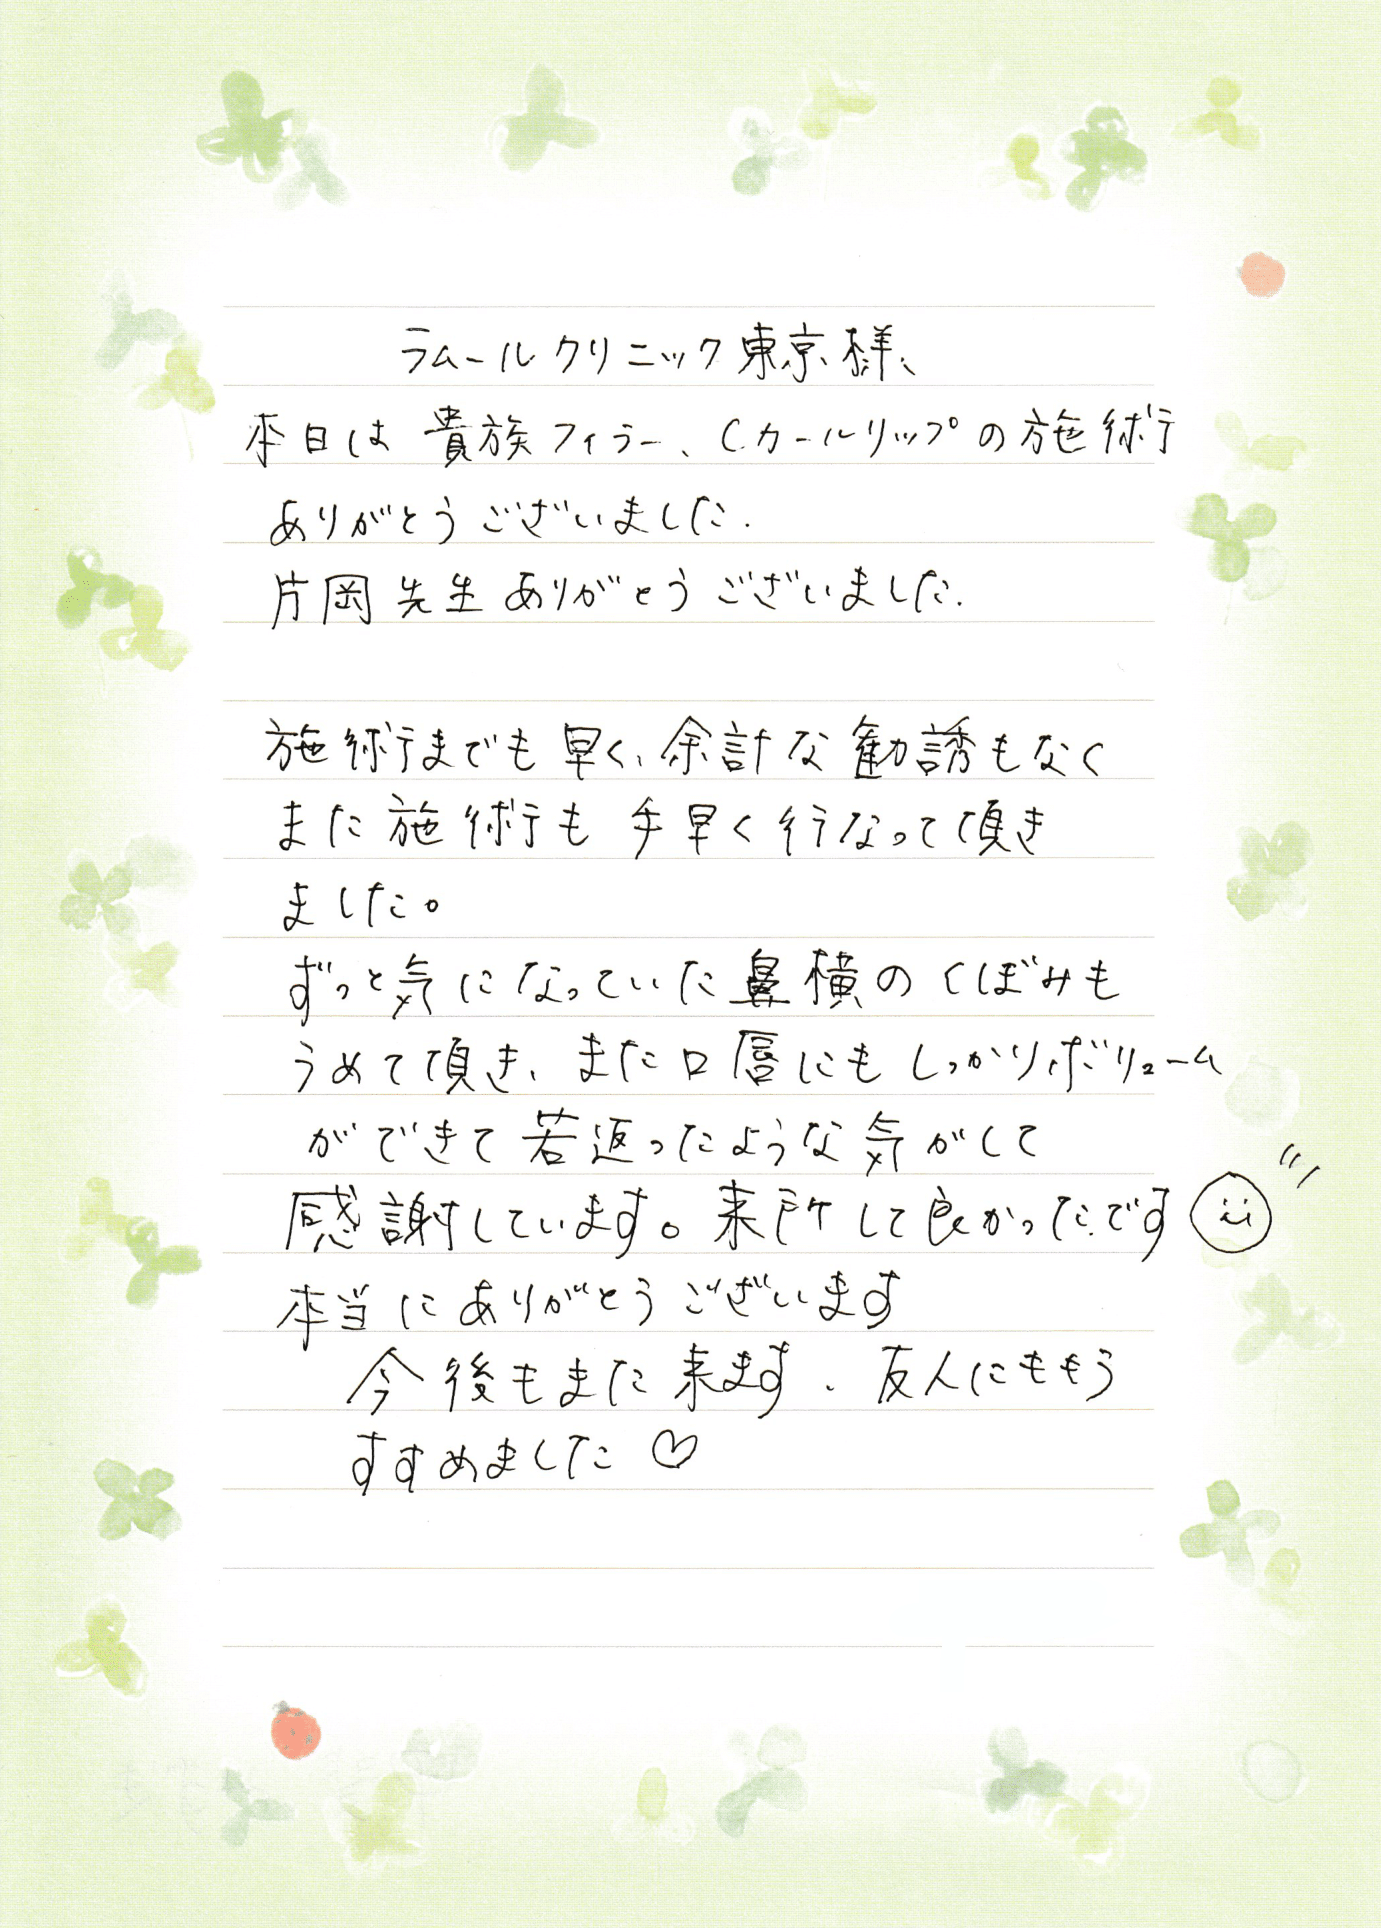 ラムールクリニック東京様、
本日は貴族フィラー、Cカールリップの施術
ありがとうございました.
片岡先生ありがとうございました.
施術までも早く、余計な勧誘もなく
また施術も手早く行なって頂き
ました。
ずっと気になっていた鼻横のくぼみも
うめて頂き、また口唇にもしっかりボリューム
ができて若返ったような気がして
感謝しています。来所して良かったです
本当にありがとうございます
今後もまた来ます、友人にももう
すすめました♡